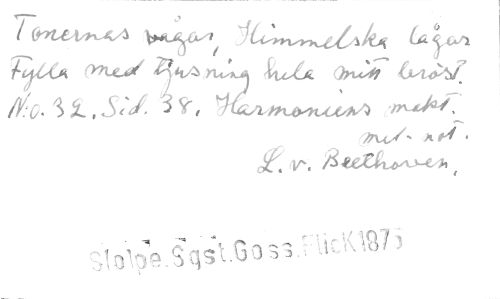 Tonernas vågar, Himmelska lågar
Fylla med tjusning hela mitt bröst.
N:o. 32. Sid. 38. Harmoniens makt.
met. not.
L. v. Beethoven.
Stolpe.Sgst.Goss.FlicK1875